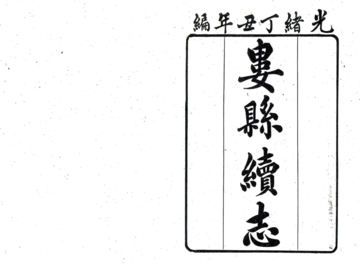 光緒丁丑年編
婁縣續志